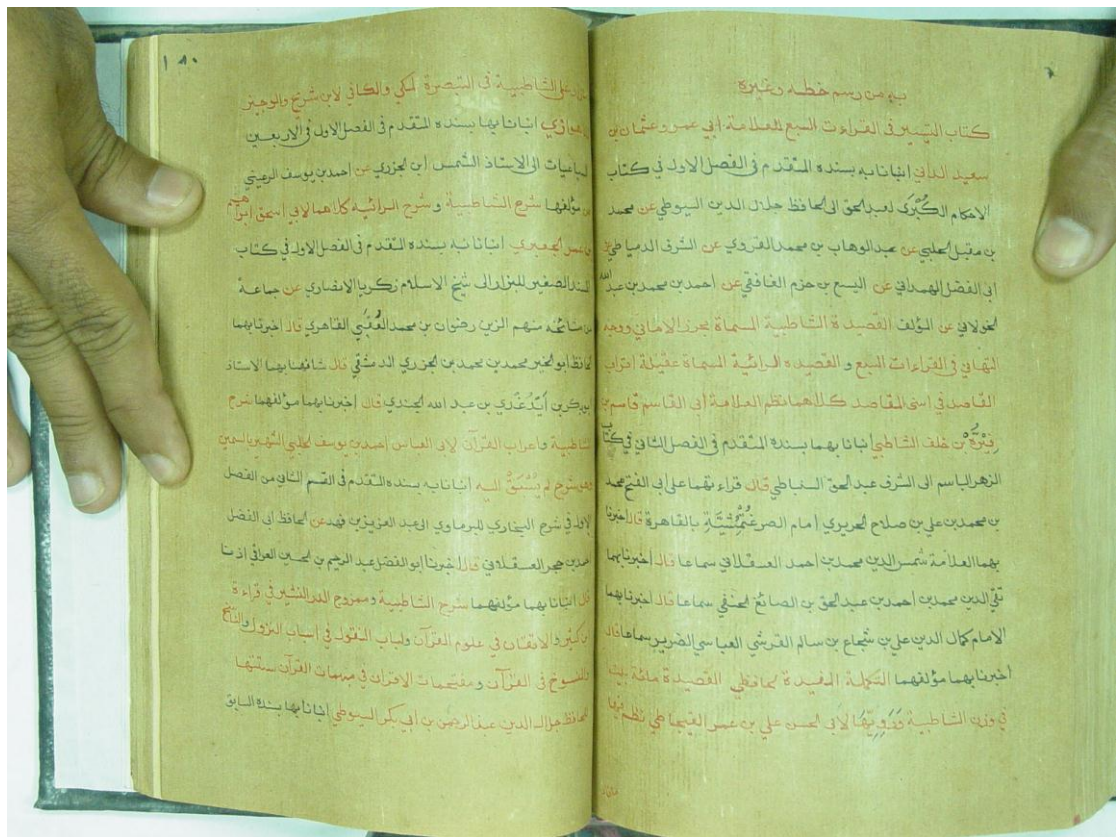 به من رسم خطه وغيره
كتاب التيسير في القراءت السبع للعلامة ابي عمرو عثمان بن
سعيد الداني انبانا به بسنده المتقدم في الفصل الاول في كتاب
الاحكام الكبرى لعبد الحق الى الحافظ جلال الدين السيوطي عن محمد
بن مقبل الحلبي عن عبد الوهاب بن محمد القروي عن الشرف الدمياطي عن
ابي الفضل الهمداني عن اليسع بن حزم الغافقي عن احمد بن محمد بن عبد الله
الخولاني عن المؤلف القصيدة الشاطبية المسماة بحرز الاماني ووجه
التهاني في القراءات السبع و القصيده الرائية المسماة عقيلة اتراب
القاصد في اسنى المقاصد كلاهما نظم العلامة أبي القاسم قاسم بن
فِيْرُّهْ بن خلف الشاطبي انبانا بهما بسنده المتقدم في الفصل الثاني في كتاب
الزهر الباسم الى الشرف عبد الحق السنباطي قال قراءتهما على ابي الفتح محمد
بن محمد بن علي بن صلاح الحريري إمام الصرغتمشية بالقاهرة قال اخبرنا
بهما العلامة شمس الدين محمد بن احمد العسقلاني سماعا قال اخبرنا بهما
تقي الدين محمد بن احمد بن عبد الحق بن الصائغ الحنفي سماعا قال اخبرنا بهما
الامام كمال الدين علي بن شجاع بن سالم القرشي العباسي الضرير سماعا قال
اخبرنا بهما مؤلفهما التكملة المفيدة لحافظي القصيدة مائة بيت
في وزن الشاطبية وَرَوِيّهَا لابي الحسن علي بن عمر القيجاطي نظم فيها
١٨٠
على الشاطبية في التبصرة لمكي والكافي لابن شريح والوجيز
انبانا بها بسنده المتقدم في الفصل الاول في الاربعين
الى الاستاذ الشمس ابن الجزري عن احمد بن يوسف الرعيني
عن مؤلفها شرح الشاطبية و شرح الرائيه كلاهما لابي اسحق ابراهيم
بن عمر الجعبري انبانا به بسنده المتقدم في الفصل الاول في كتاب
المسند الصغير للبزار الى شيخ الاسلام زكريا الانصاري عن جماعة
من مشائخه منهم الزين رضوان بن محمد العُقْبِي القاهري قال اخبرنا بهما
الحافظ ابو الخير محمد بن محمد بن محمد بن الجزري الدمشقي قال شافهنا بهما الاستاذ
ابو بكر بن أَيْدُغْدِي بن عبد الله الجندي قال اخبرنا بهما مؤلفهما شرح
الشاطبية واعراب القرآن لابي العباس احمد بن يوسف الحلبي الشهير بالسمين
وهو شرح لم يُسْبَقْ اليه انبانا به بسنده المتقدم في القسم الثاني من الفصل
الاول في شرح البخاري للبرماوي الى عبد العزيز بن فهد عن الحافظ ابي الفضل
احمد بن حجر العسقلاني قال اخبرنا أبو الفضل عبد الرحيم بن الحسين العراقي اذنا
قال انبانا بهما مؤلفهما شرح الشاطبية وممزوج الدر النثير في قراءة
بن كثير و الاتقان في علوم القرآن ولباب النقول في اسباب النزول والناسخ
والمنسوخ في القرآن ومفتحمات الاقران في مبهمات القرآن ستتها
للحافظ جلال الدين عبد الرحمن بن ابي بكر السيوطي انبانا بها بسنده السابق